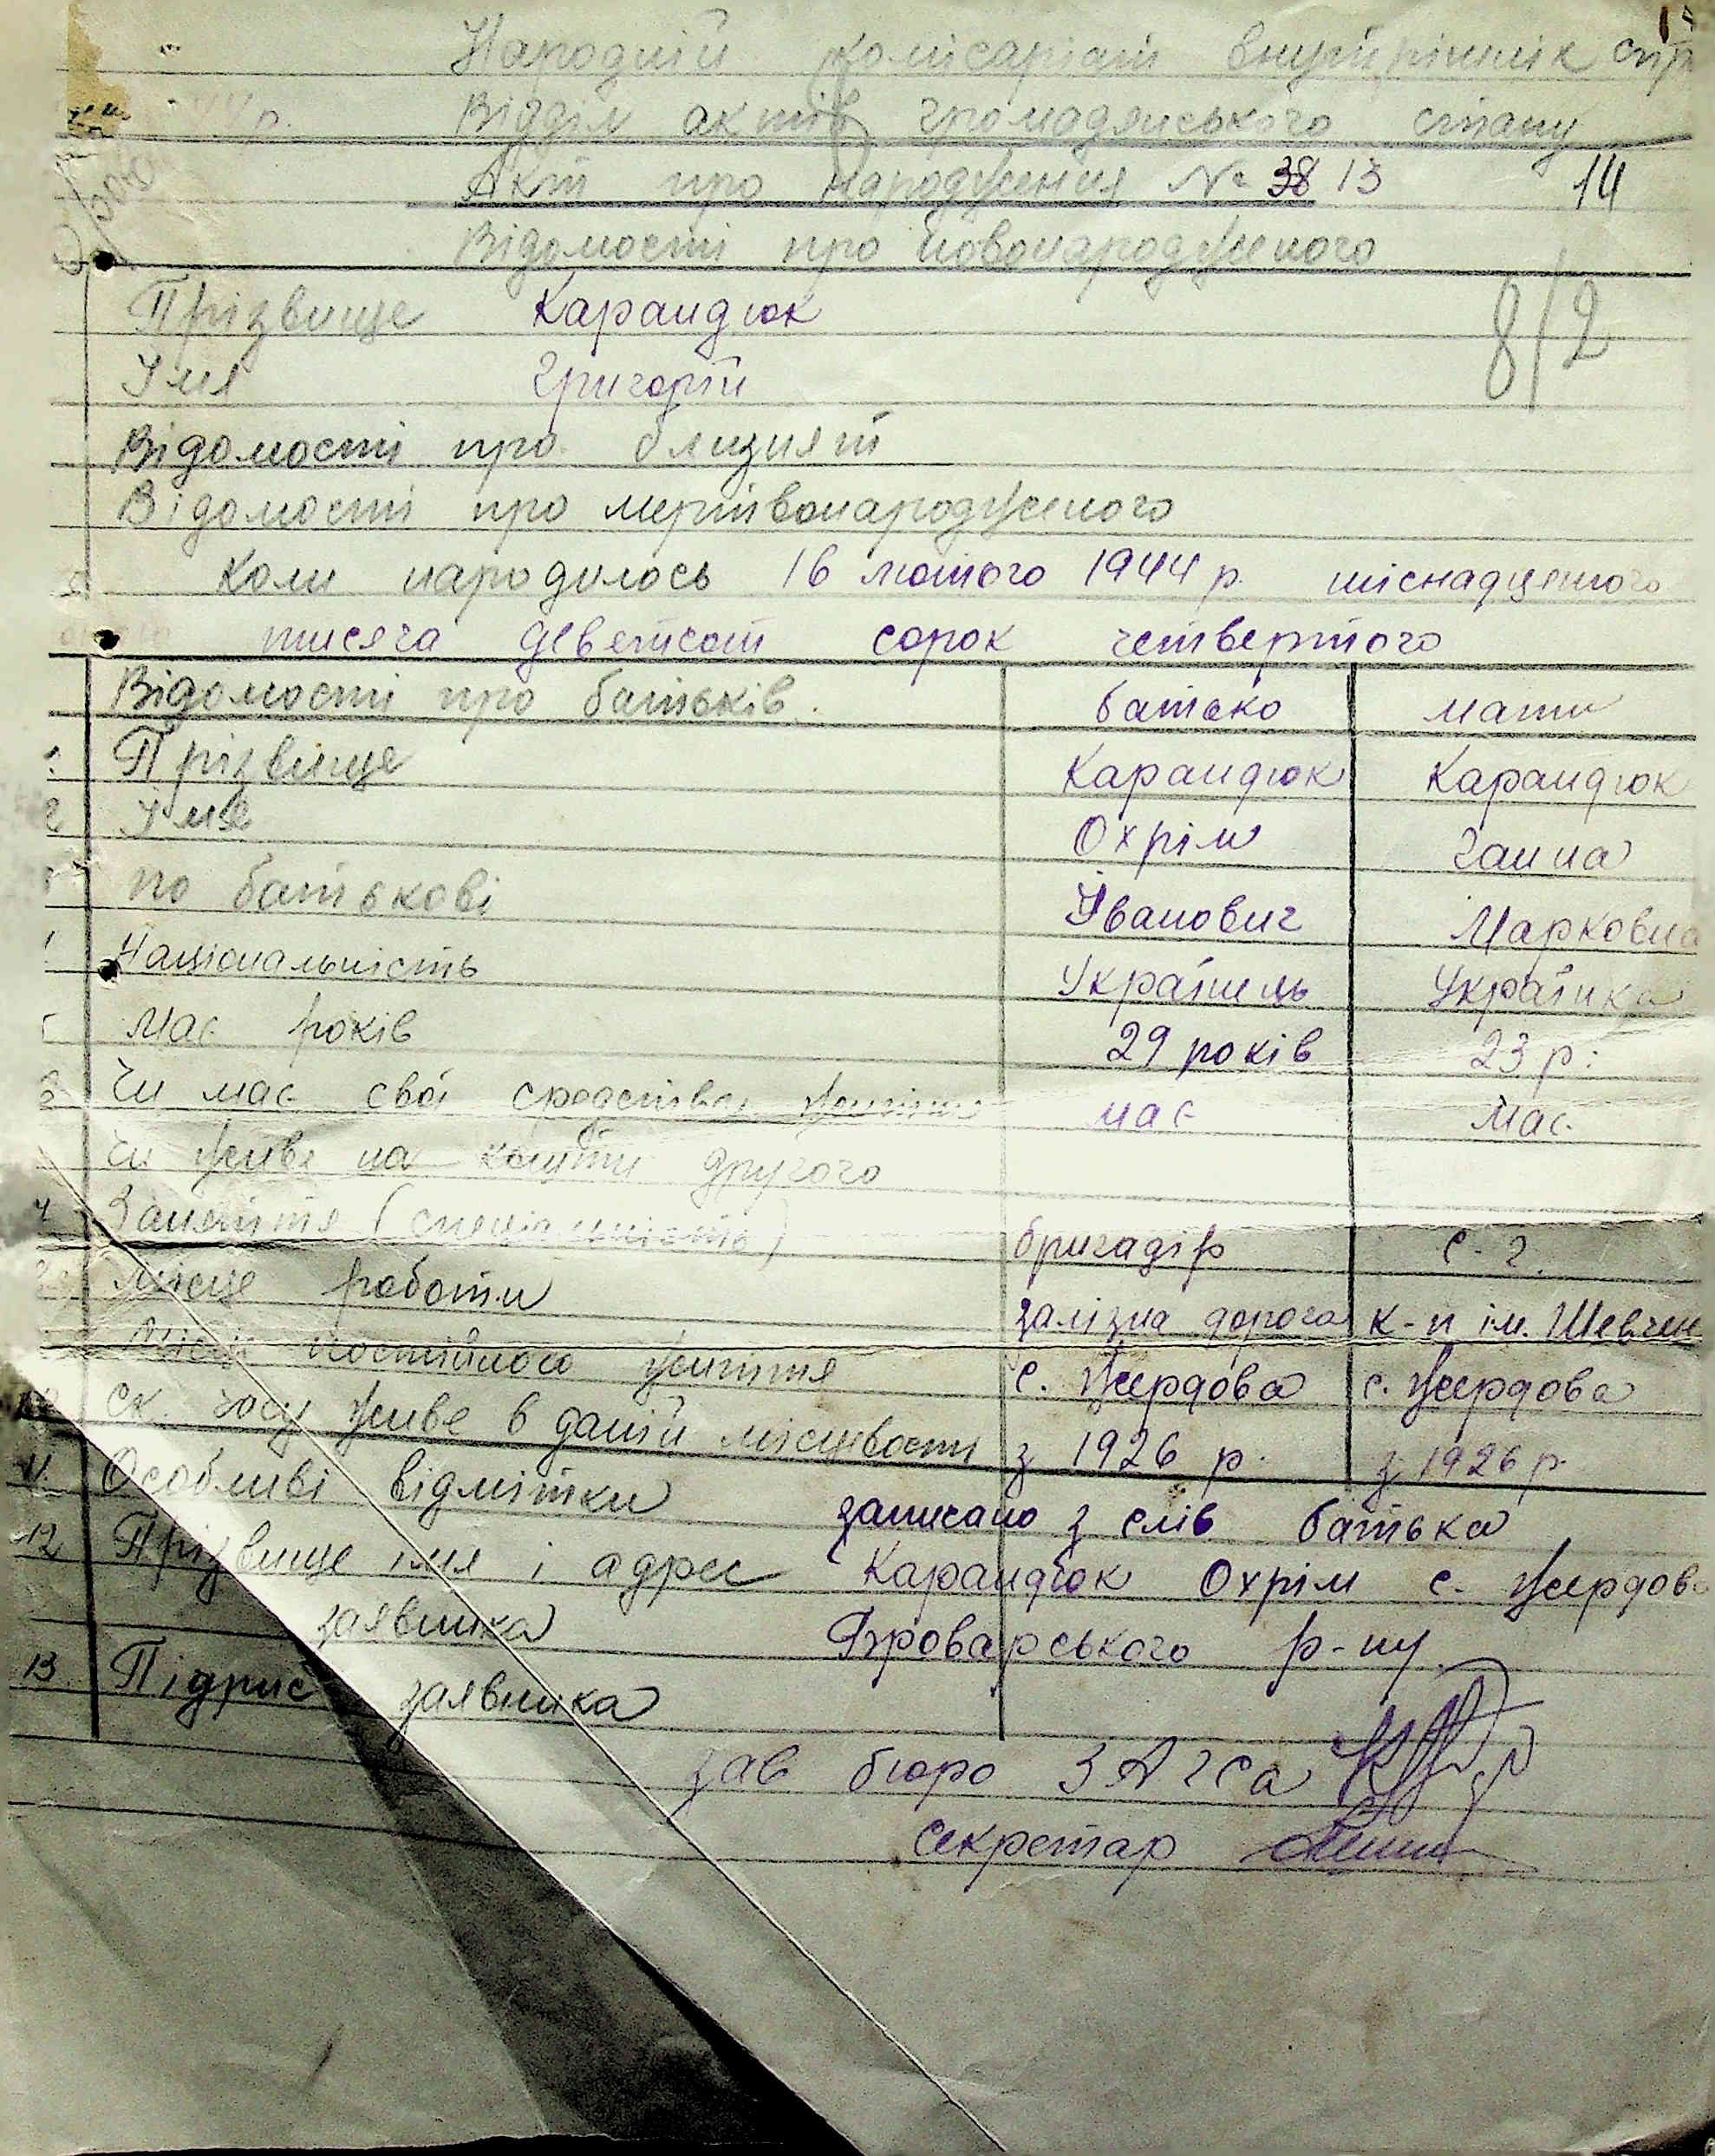 Народній комісаріат внутрішніх спр
Відділ актів громадянського стану
Акт про народження № 38 13 14
Відомості про новонародженого
Прізвище Карандюк
8/2
Імя Григорій
Відомості про близнят
Відомості про мертвонародженого
Коли народилось 16 лютого 1944 р. шіснадцятого
тисяча девятсот сорок четвертого
Відомості про батьків. батько мати
Прізвище Карандюк Карандюк
2 Імя Охрім Ганна
по батькові Іванович Марковна
Національність Українець Українка
Має років 29 років 23 р.
Чи має свої средства має має
Чи живе на кошти другого
Заняття (спеціальність) бригадір с-г.
місце роботи залізна дорога к-п ім. Шевчен
Місце постійного життя с. Жердова с. Жердова
ск. часу живе в даній місцевості з 1926 р. з 1926 р.
11. Особливі відмітки записано з слів батька
12 Прізвище імя і адрес Карандюк Охрім с. Жердова
заявника Броварського р-ну
13. Підпис заявника
зав бюро ЗАГСа
секретар